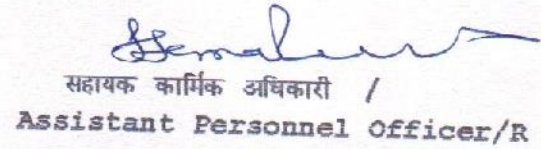 सहायक कार्मिक अधिकारी /
Assistant Personnel Officer/R